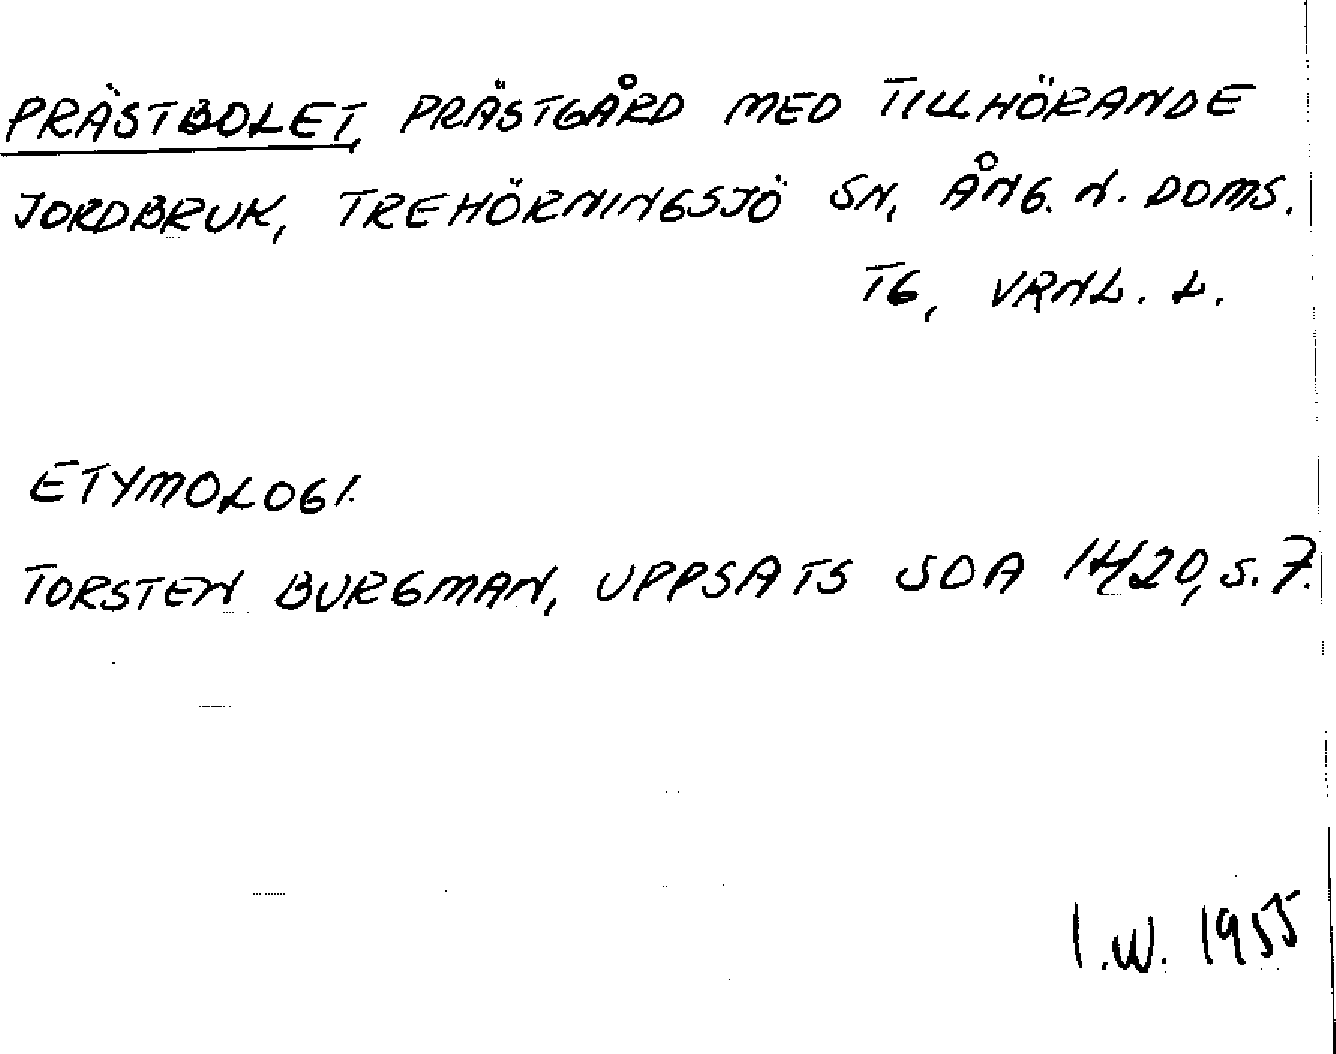 PRÄSTBOLET, PRÄSTGÅRD MED TILLHÖRANDE
JORDBRUK, TREHÖRNINGSJÖ SN, ÅNG. N. DOMS.
TG, VRNL. L.
ETYMOLOGI.
TORSTEN BURGMAN, UPPSATS SOA 1420, S. 7.
I.W. 1955